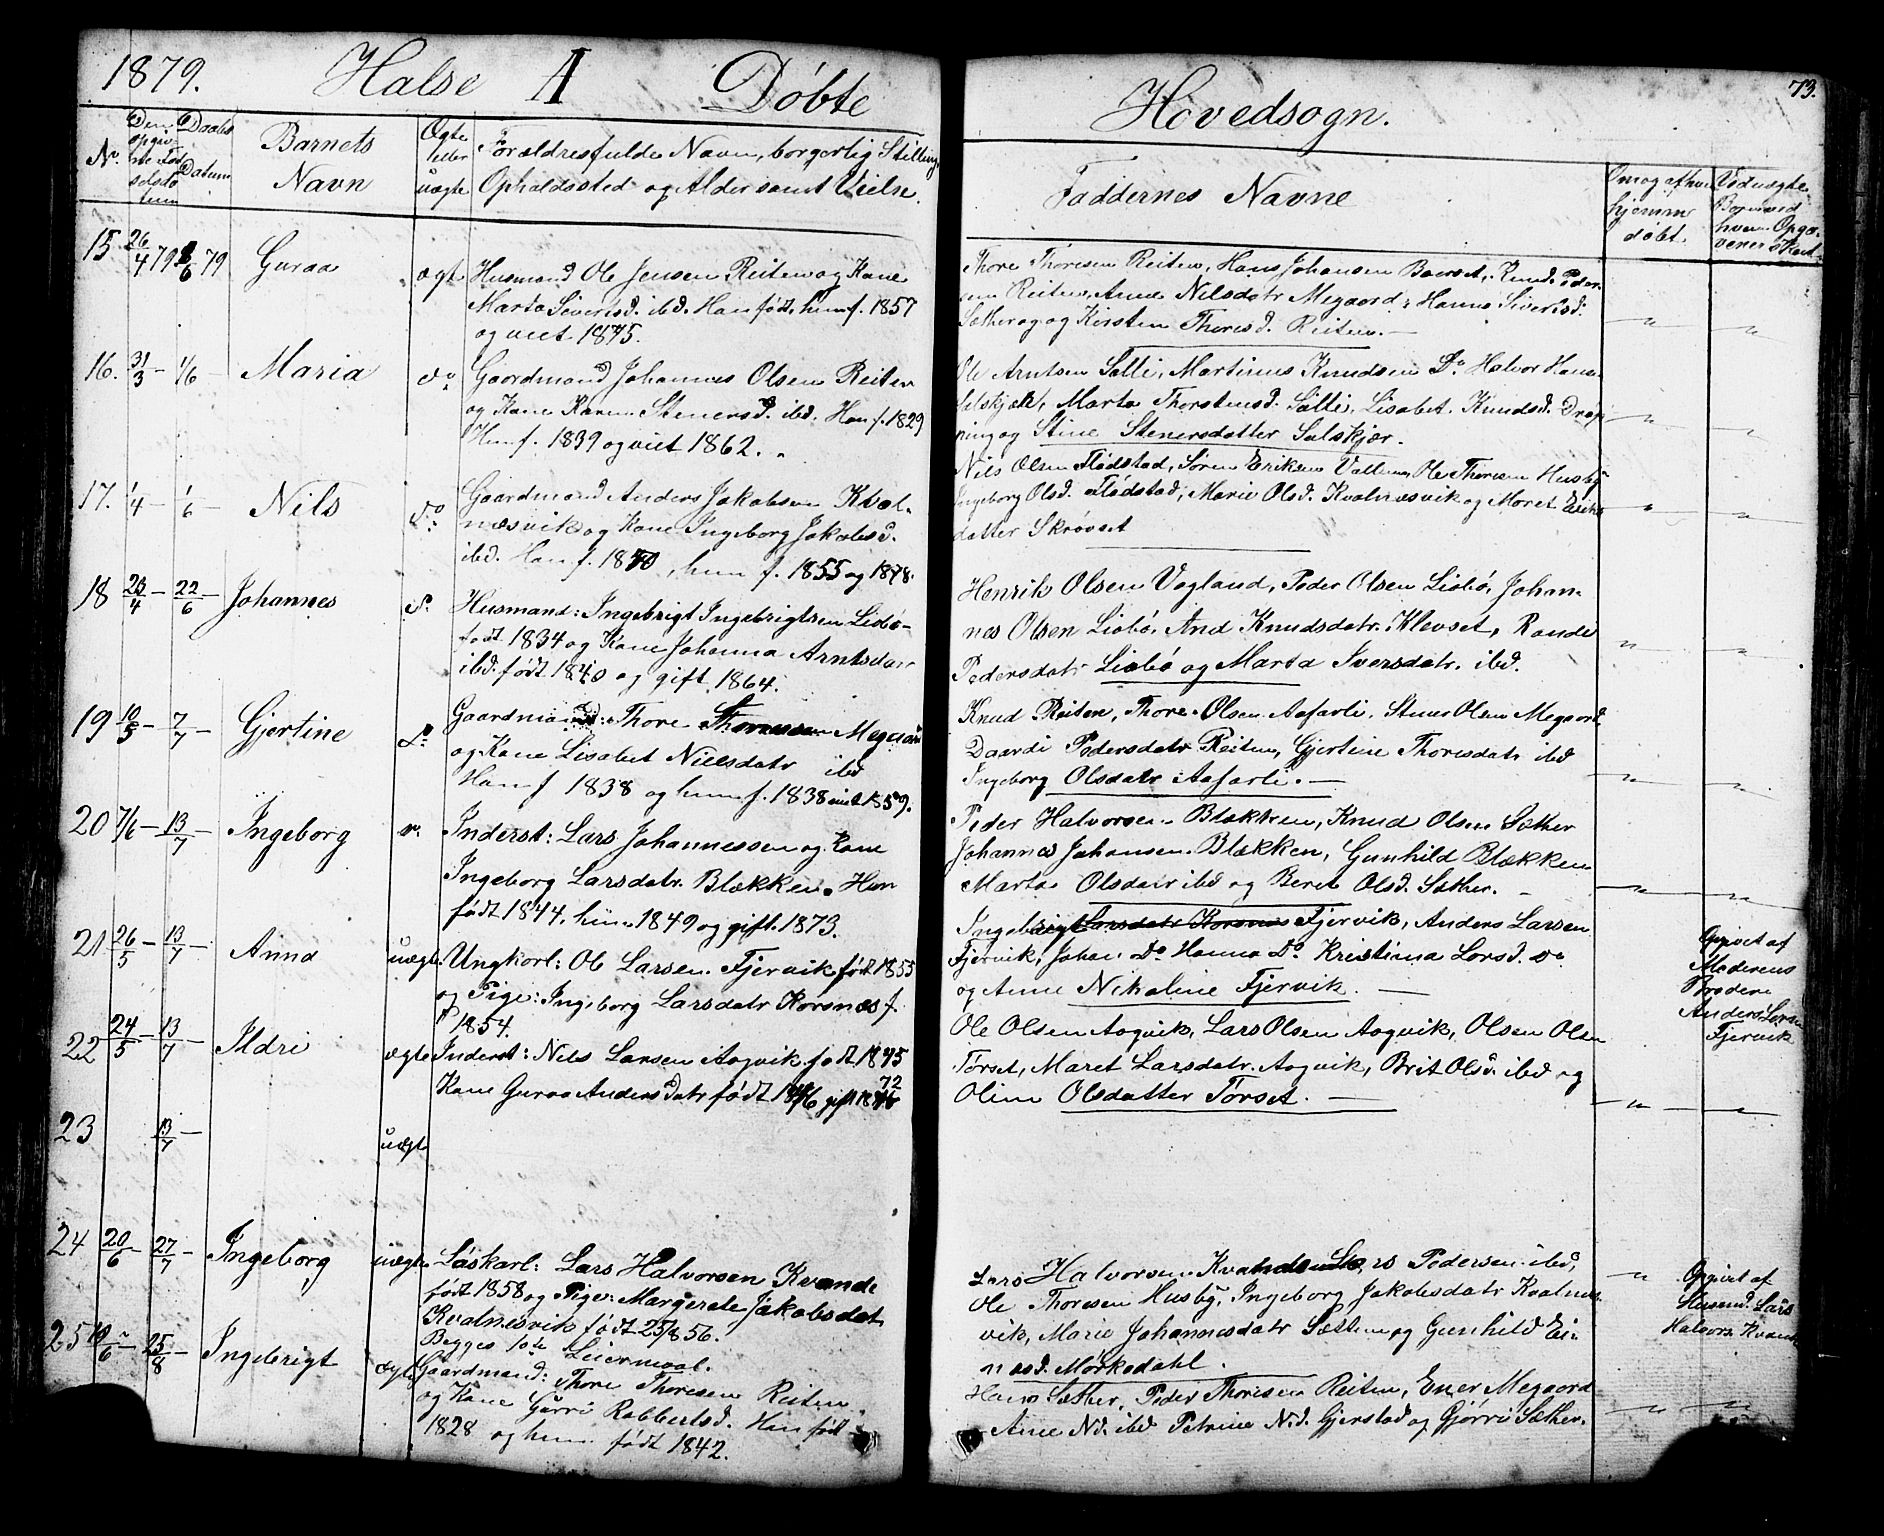 1879. Halse A Døbte
No. Den opgivne Fødselsdatum Daabs Datum Barnets Navn Ægte eller uægte Forældres fulde Navn, borgerlig Stilling, Opholdssted og Alder samt Vielse.
15. 26/4 79 /6 79 Guraa ægte Husmand Ole Jensen Reiten og Kone
Marta Sivertsd. ibd. Han født, hun f. 1857
og viet 1875.
16. 31/3 – 1/6 – Maria do. Gaardmand Johannes Olsen Reiten
og Kone Karen Stenersd. ibd. Han f. 1829
Hun f. 1839 og viet 1862.
17. 1/4 – 1/6 – Nils do. Gaardmand Anders Jakobsen Kval-
næsvik og Kone Ingeborg Jakobsd.
ibd. Han f. 1850, hun f. 1855 og 1878.
18 23/4 – 22/6 – Johannes d. Husmand: Ingebrigt Ingebrigtsen Liabø
født 1834 og Kone Johanna Arntsdatr
ibd. født 1840 og gift 1864.
19 10/5 – 7/7 – Gjertine d. Gaardmand: Thore Thoresen Megaard
og Kone Lisabet Nielsdatr ibd
Han f 1838 og hun f. 1838 viet 1859.
20 7/6 – 13/7 – Ingeborg d. Inderst: Lars Johannessen og Kone
Ingeborg Larsdatr. Blækken. Han
født 1844, hun 1849 og gift 1873.
21 26/5 – 13/7 – Anna uægte Ungkarl: Ole Larsen Fjervik født 1855
og Pige: Ingeborg Larsdatr Korsnæs f.
1854.
22 24/5 – 13/7 – Ildri ægte Inderst: Nils Larsen Aagvik født 1845
Kone Guraa Andersdatr født 1846 gift 1872
23 13/7 – uægte
24 20/6 – 27/7 – Ingeborg uægte Løskarl: Lars Halvorsen Kvande
født 1858 og Pige: Margerete Jakobsdat
Kvalnesvik født 25/8 56.
Begges 1ste Leiermaal.
25 /6 – 25/8 – Ingebrigt ægte Gaardmand: Thore Thoresen Reiten
og Kone Gurri Robbertsd. Han født
1828 og hun født 1842.
Hovedsogn. 73.
Faddernes Navne Om og af hvem hjemmedøbt. Ved uægte Børn ved hvem Opgavener skeet.
Thore Thoresen Reiten, Hans Johansen Boerset, Knud Peder-
sen Reiten, Anne Nilsdatr Megaard, Hanna Siversd.
Sæther og og Kirsten Thoresd. Reiten. –
Ole Arntsen Sætli, Martinus Knudsen Do. Halvor Hans.
Salskjær, Marta Thorstensd. Sætli, Lisabet Knudsd. Drøp
ning og Stine Stenersdatter Salskjær.
Nils Olsen Flødstad, Søren Eriksen Vullum, Ole Thoresen Husby
Ingeborg Olsd. Flødstad, Marie Olsd. Kvalnæsvik og Maret Eriks
datter Skrøvset
Henrik Olsen Vagland, Peder Olsen Liabø, Johan-
nes Olsen Liabø, And Knudsdatr. Klevset, Rande
Pedersdatr Liabø og Marta Iversdatr. ibd.
Knud Reiten, Thore Olsen Aafarli, Stener Olsen Megaard
Daardi Pedersdatr Reiten, Gjertine Thoresdatr ibd
Ingeborg Olsdatr Aafarli. –
Peder Halvorsen Blækken, Knud Olsen Sæther
Johannes Johansen Blækken, Gunhild Blækken
Marta Olsdatr ibd og Beret Olsd. Sæther. –
Ingebrigt Larsdatr Korsnæs Fjervik, Anders Larsen
Fjervik, Johan Do Hanna Do. Kristina Larsd. do
og Anne Nikoline Fjervik. –
Opgivet af
Moderens
Broder
Anders Larsen
Fjervik
Ole Olsen Aagvik, Lars Olsen Aagvik, Olsen Olsen
Tørset, Maret Larsdatr. Aagvik, Brit Olsd. ibd og
Oline Olsdatter Tørset. –
Lars Halvorsen Kvande Lars Pedersen ibd,
Ole Thoresen Husby, Ingeborg Jakobsdatr Kvalnes
vik, Marie Johannesdatr Sættem og Gunhild Ei-
nasd. Mørkedahl.
Opgivet af
Husmd. Lars
Halvors. Kvande
Hans Sæther, Peder Thoresen Reiten, Ener Megaard
Anne Nd. ibd Petrine Nd. Gjerstad og Gjørri Sæther.